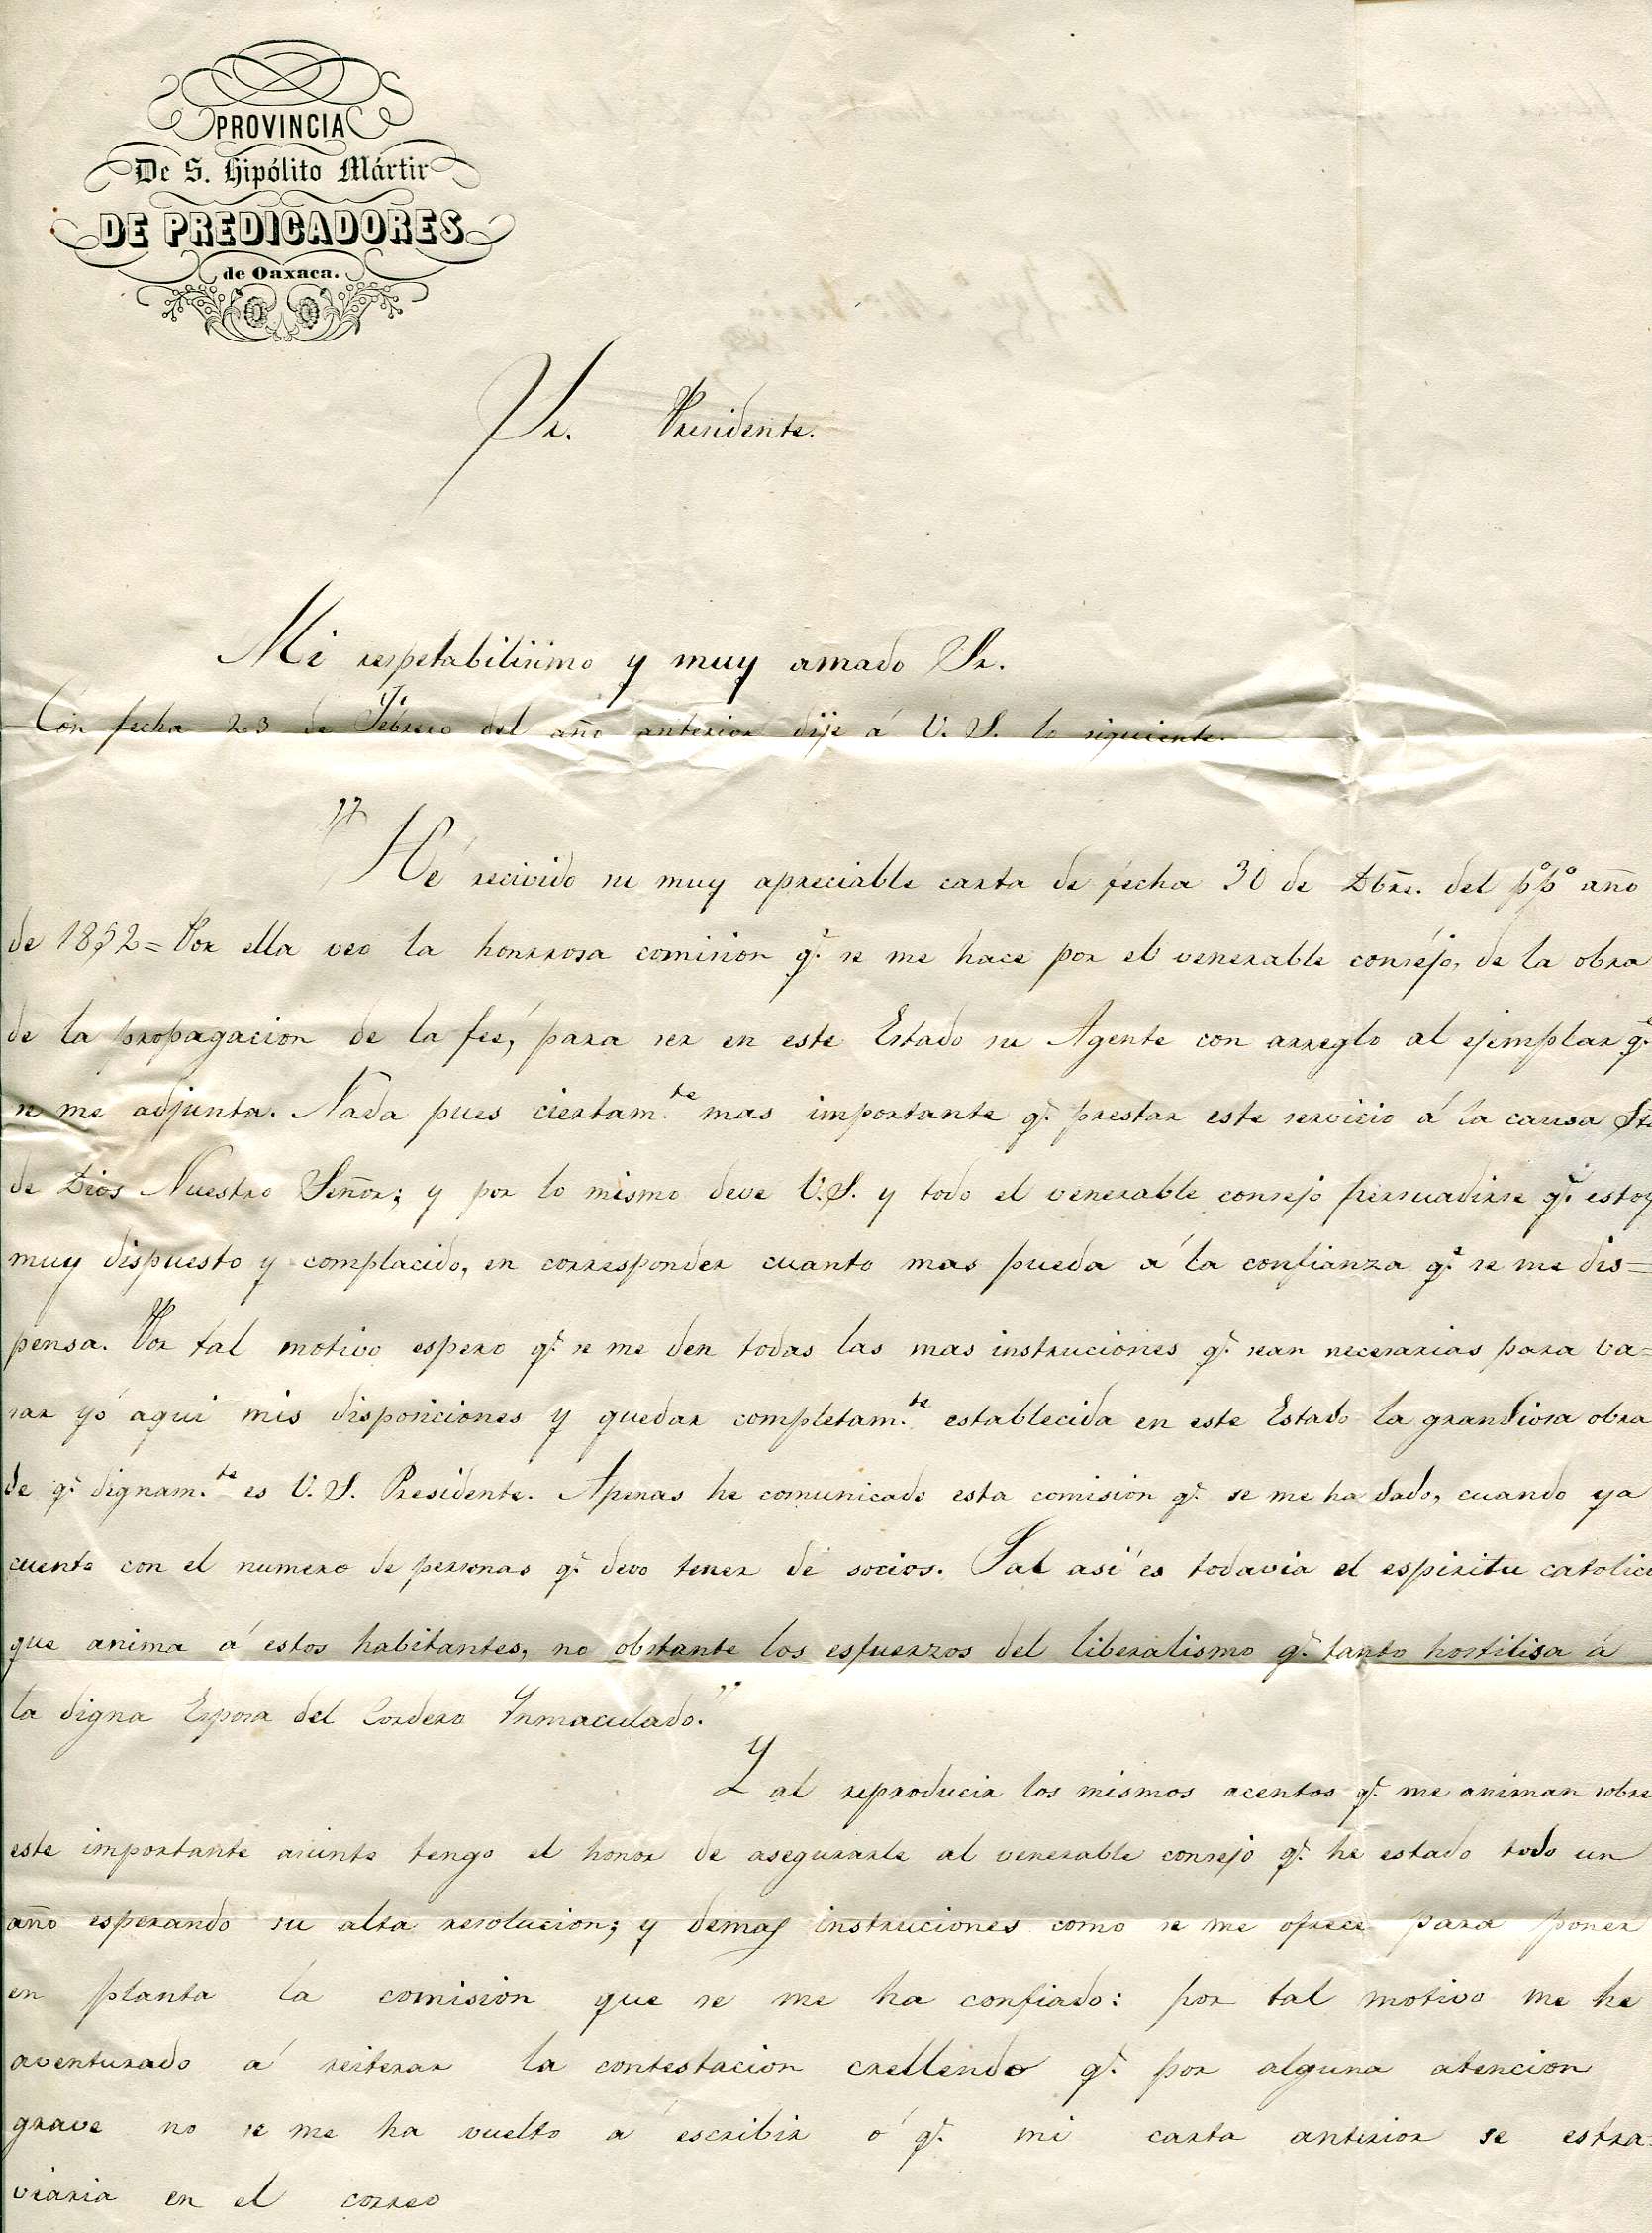 PROVINCIA
De S. Hipólito Mártir
DE PREDICADORES
de Oaxaca.
Sr. Presidente.
Mi respetabilisimo y muy amado Sr.
Con fecha 23 de Febrero del año anterior dije á V. S. lo siguiente.
" Hé recivido su muy apreciable carta de fecha 30 de Dbre. del p.º p.º año
de 1852= Por ella veo la honrrosa comision q.e se me hace por el venerable conséjo, de la obra
de la propagacion de la feé, para ser en este Estado su Agente con arreglo al ejemplar q.e
se me adjunta. Nada pues ciertam.te mas importante q.e prestar este servicio á la causa Sta
de Dios Nuestro Señor; y por lo mismo deve V.S. y todo el venerable consejo persuadirse q.e estoy
muy dispuesto y complacido, en corresponder cuanto mas pueda á la confianza q.e se me dis=
pensa. Por tal motivo espero q.e se me den todas las mas instruciones q.e sean necesarias para va=
sar yó aqui mis disposiciones y quedar completam.te establecida en este Estado la grandiosa obra
de q.e dignam.te es V. S. Presidente. Apenas he comunicado esta comision q.e se me ha dado, cuando ya
cuento con el numero de personas q.e devo tener de socios. Tal asi es todavia el espiritu catolico
que anima á estos habitantes, no obstante los esfuerzos del liberalismo q.e tanto hostilisa á
la digna Esposa del Cordero Ynmaculado."
Y al reproducir los mismos acentos q.e me animan sobre
este importante asunto tengo el honor de asegurarle al venerable consejo q.e he estado todo un
año esperando su alta resolucion; y demas instruciones como se me ofrece para poner
en planta la comision que se me ha confiado: por tal motivo me he
aventurado á reiterar la contestacion crellendo q.e por alguna atencion
grave no se me ha vuelto á escribir ó q.e mi carta anterior se estra=
viaria en el correo